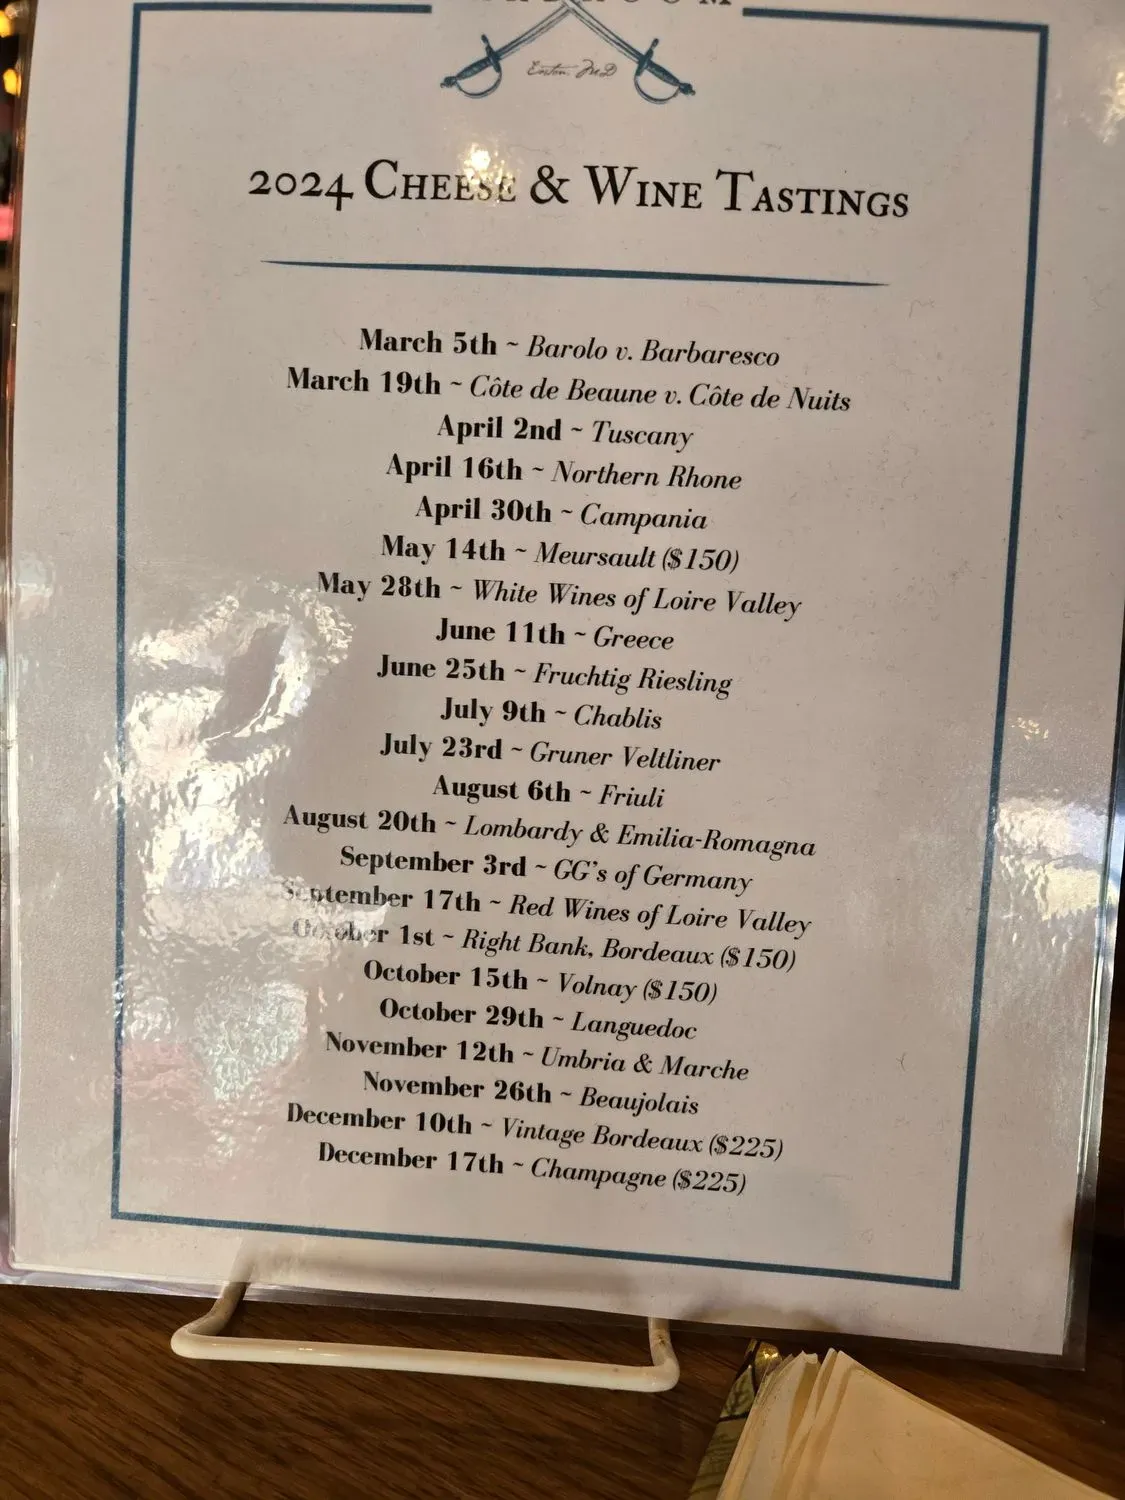 Easton, MD
2024 Cheese & Wine Tastings
March 5th ~ Barolo v. Barbaresco
March 19th ~ Côte de Beaune v. Côte de Nuits
April 2nd ~ Tuscany
April 16th ~ Northern Rhone
April 30th ~ Campania
May 14th ~ Meursault ($150)
May 28th ~ White Wines of Loire Valley
June 11th ~ Greece
June 25th ~ Fruchtig Riesling
July 9th ~ Chablis
July 23rd ~ Gruner Veltliner
August 6th ~ Friuli
August 20th ~ Lombardy & Emilia-Romagna
September 3rd ~ GG's of Germany
September 17th ~ Red Wines of Loire Valley
October 1st ~ Right Bank, Bordeaux ($150)
October 15th ~ Volnay ($150)
October 29th ~ Languedoc
November 12th ~ Umbria & Marche
November 26th ~ Beaujolais
December 10th ~ Vintage Bordeaux ($225)
December 17th ~ Champagne ($225)